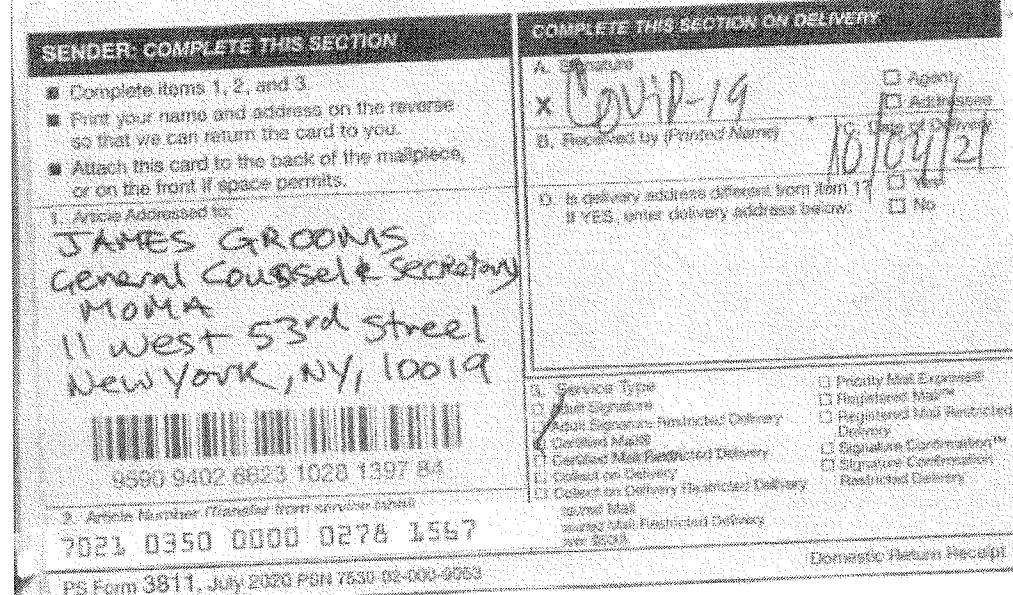 SENDER: COMPLETE THIS SECTION
■ Complete items 1, 2, and 3.
■ Print your name and address on the reverse
so that we can return the card to you.
■ Attach this card to the back of the mailpiece,
or on the front if space permits.
1. Article Addressed to:
JAMES GROOMS
General Counsel & Secretary
MOMA
11 West 53rd Street
New York, NY, 10019
9590 9402 6823 1028 1397 84
2. Article Number (Transfer from service label)
7021 0350 0000 0278 1567
PS Form 3811, July 2020 PSN 7530-02-000-9053
COMPLETE THIS SECTION ON DELIVERY
A. Signature
X COVID-19
□ Agent
□ Addressee
B. Received by (Printed Name)
C. Date of Delivery
10/04/21
D. Is delivery address different from item 1? □ Yes
If YES, enter delivery address below: □ No
3. Service Type
□ Adult Signature
□ Adult Signature Restricted Delivery
□ Certified Mail®
□ Certified Mail Restricted Delivery
□ Collect on Delivery
□ Collect on Delivery Restricted Delivery
Mail
Mail Restricted Delivery
□ Priority Mail Express®
□ Registered Mail™
□ Registered Mail Restricted
Delivery
□ Signature Confirmation™
□ Signature Confirmation
Restricted Delivery
Domestic Return Receipt